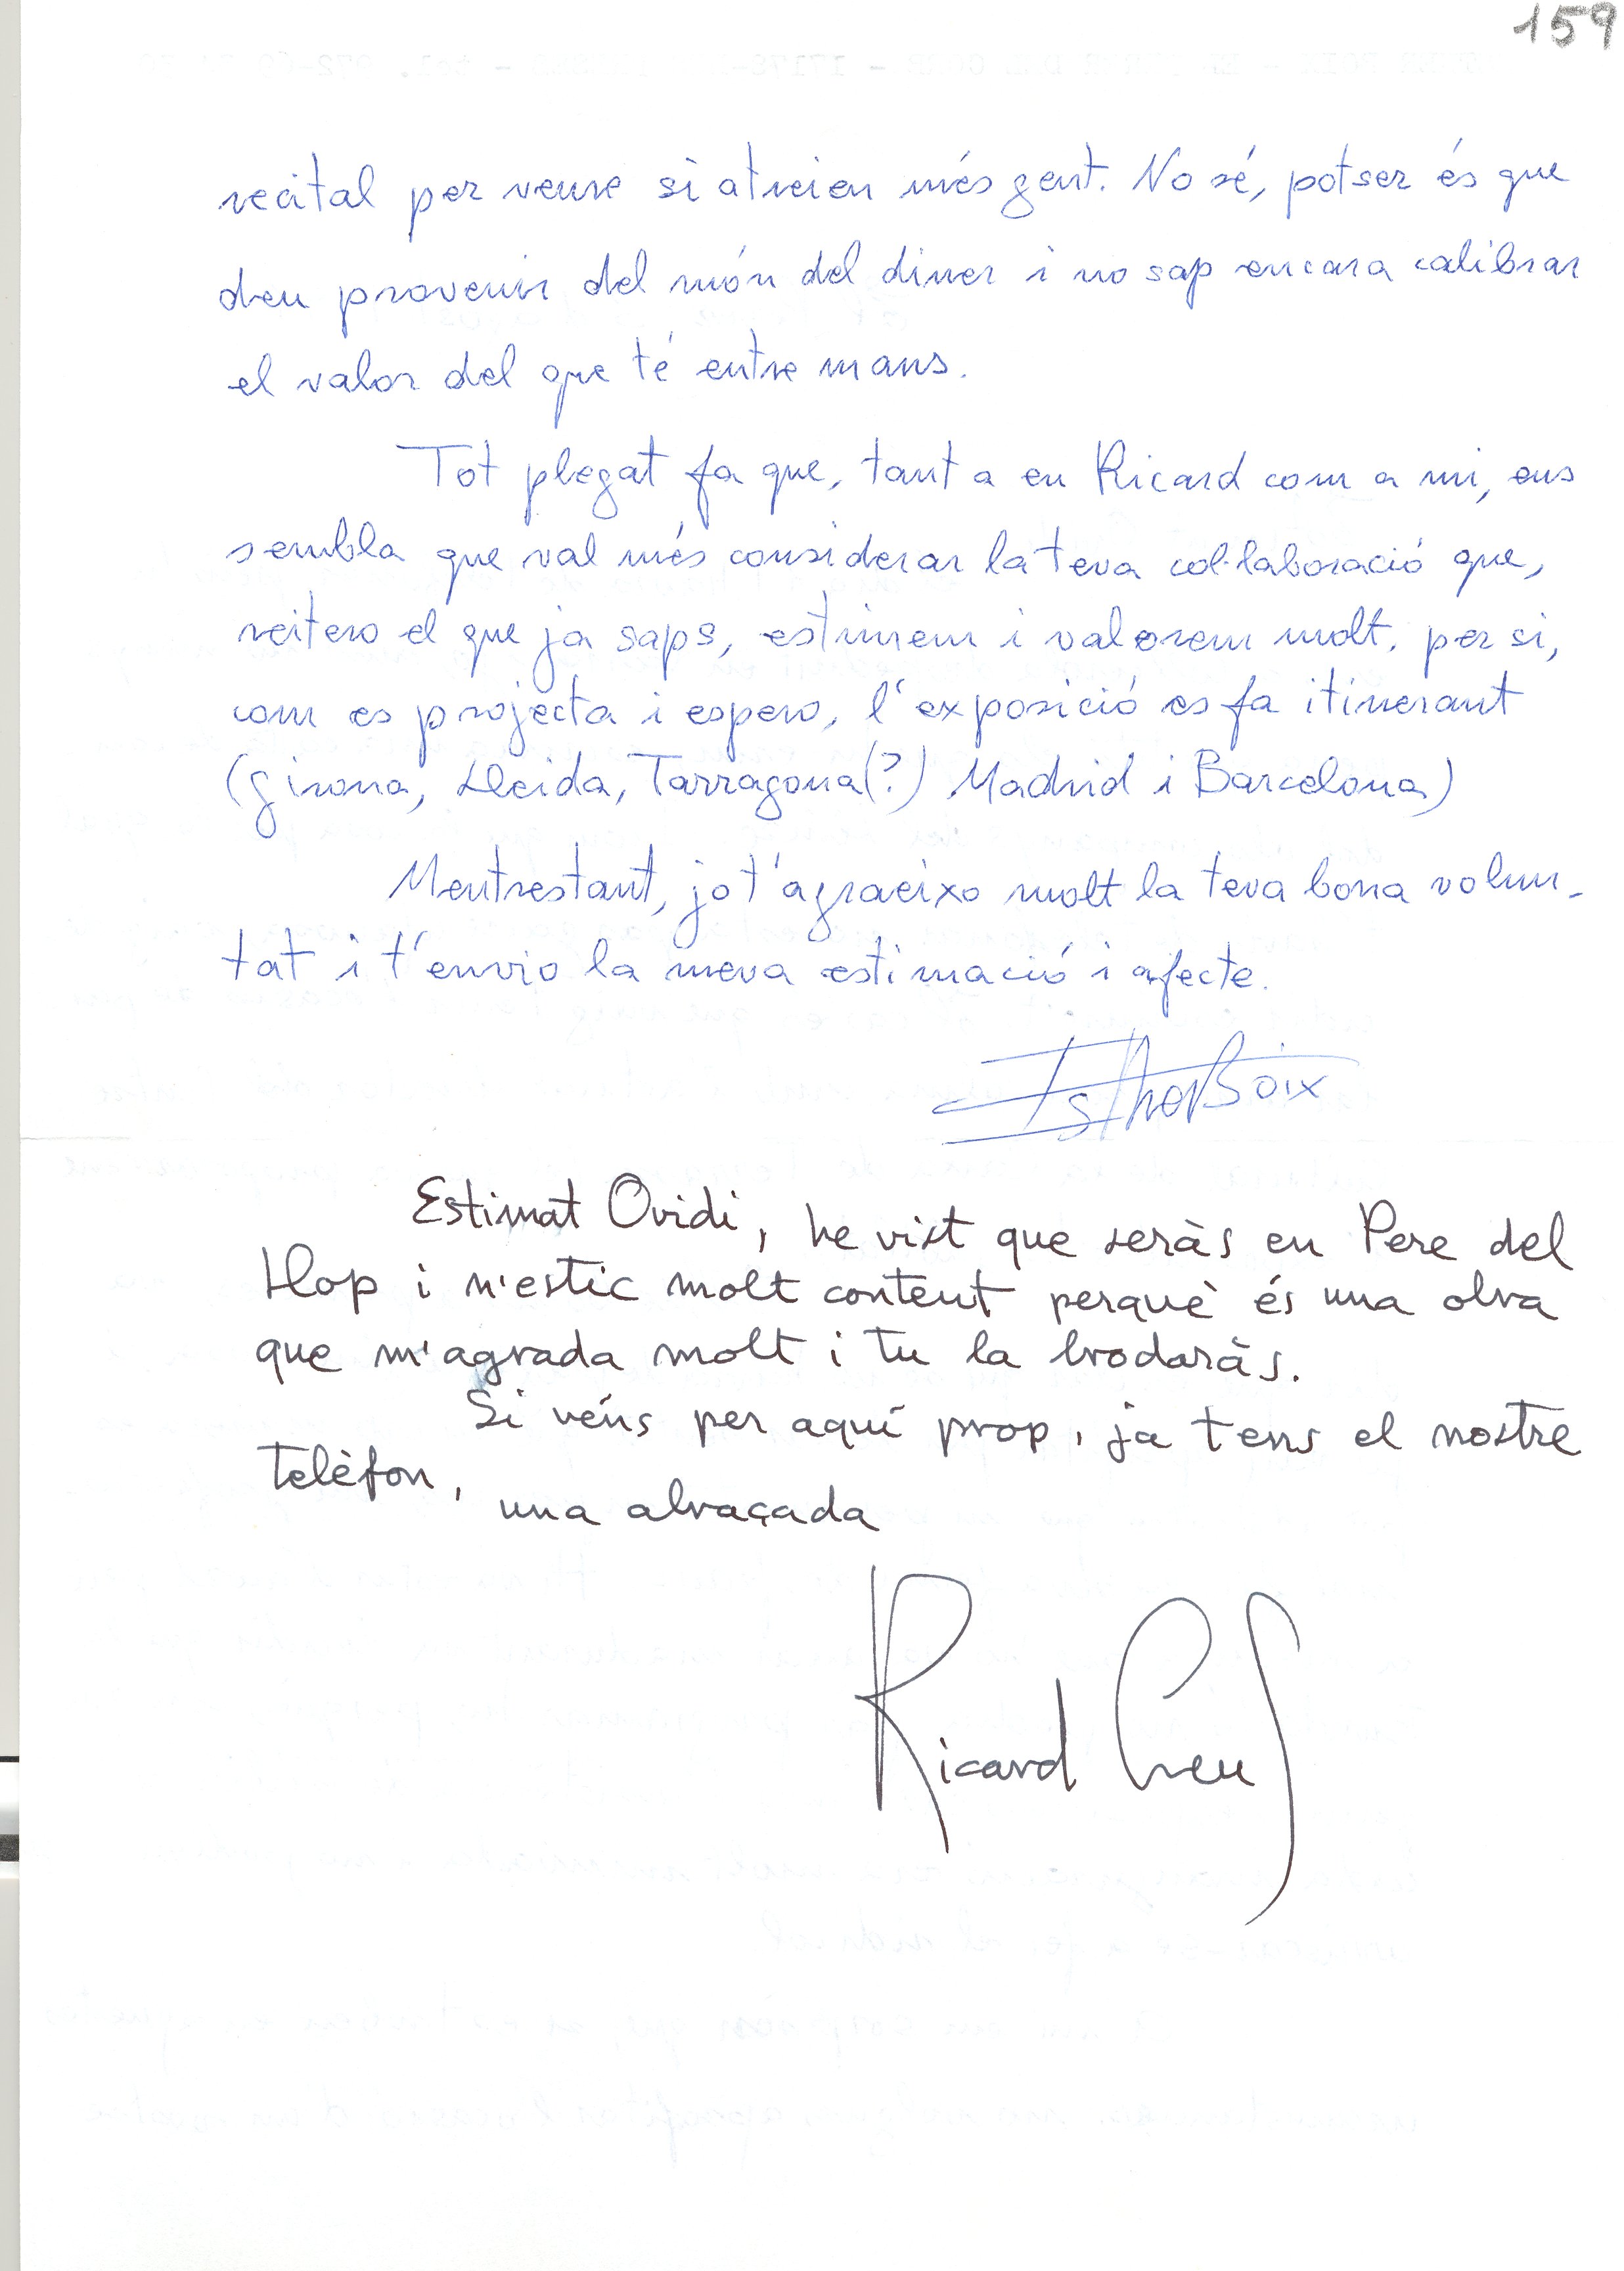 159
recital per veure si atreien més gent. No sé, potser és que
deu provenir del món del diner i no sap encara calibrar
el valor del que té entre mans.
Tot plegat fa que, tant a en Ricard com a mi, ens
sembla que val més considerar la teva col·laboració que,
reitero el que ja saps, estimem i valorem molt, per si,
com es projecta i espero, l'exposició es fa itinerant
(Girona, Lleida, Tarragona(?) Madrid i Barcelona)
Mentrestant, jo t'agraeixo molt la teva bona volun-
tat i t'envio la meva estimació i afecte.
Esther Boix
Estimat Ovidi, he vist que seràs en Pere del
Llop i n'estic molt content perquè és una obra
que m'agrada molt i tu la brodaràs.
Si véns per aquí prop, ja tens el nostre
telèfon, una abraçada
Ricard Creus